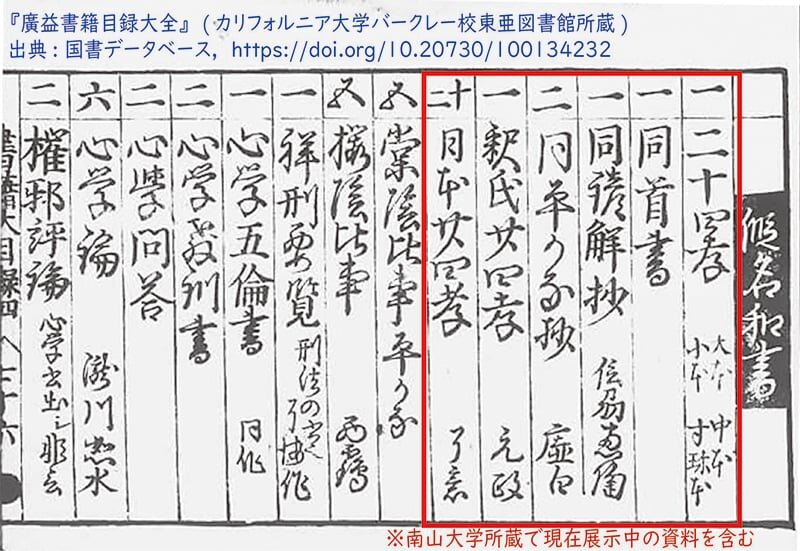 『廣益書籍目録大全』 (カリフォルニア大学バークレー校東亜図書館所蔵)
出典:国書データベース, https://doi.org/10.20730/100134232
假名和書
一 二十四孝 大本 中本 小本 寸珎本
一 同首書
一 同諺解抄
二 同平かな抄 虚白
一 釈氏廿四孝 元政
十二 日本廿四孝 了意
五 棠陰比事平かな
五 棠陰比事
一 祥刑要覧
一 心学五倫書 同作
二 心学教訓書
二 心学問答
六 心学論 瀧川
二 権邪評論
書籍大目録四 八 二十六
※南山大学所蔵で現在展示中の資料を含む